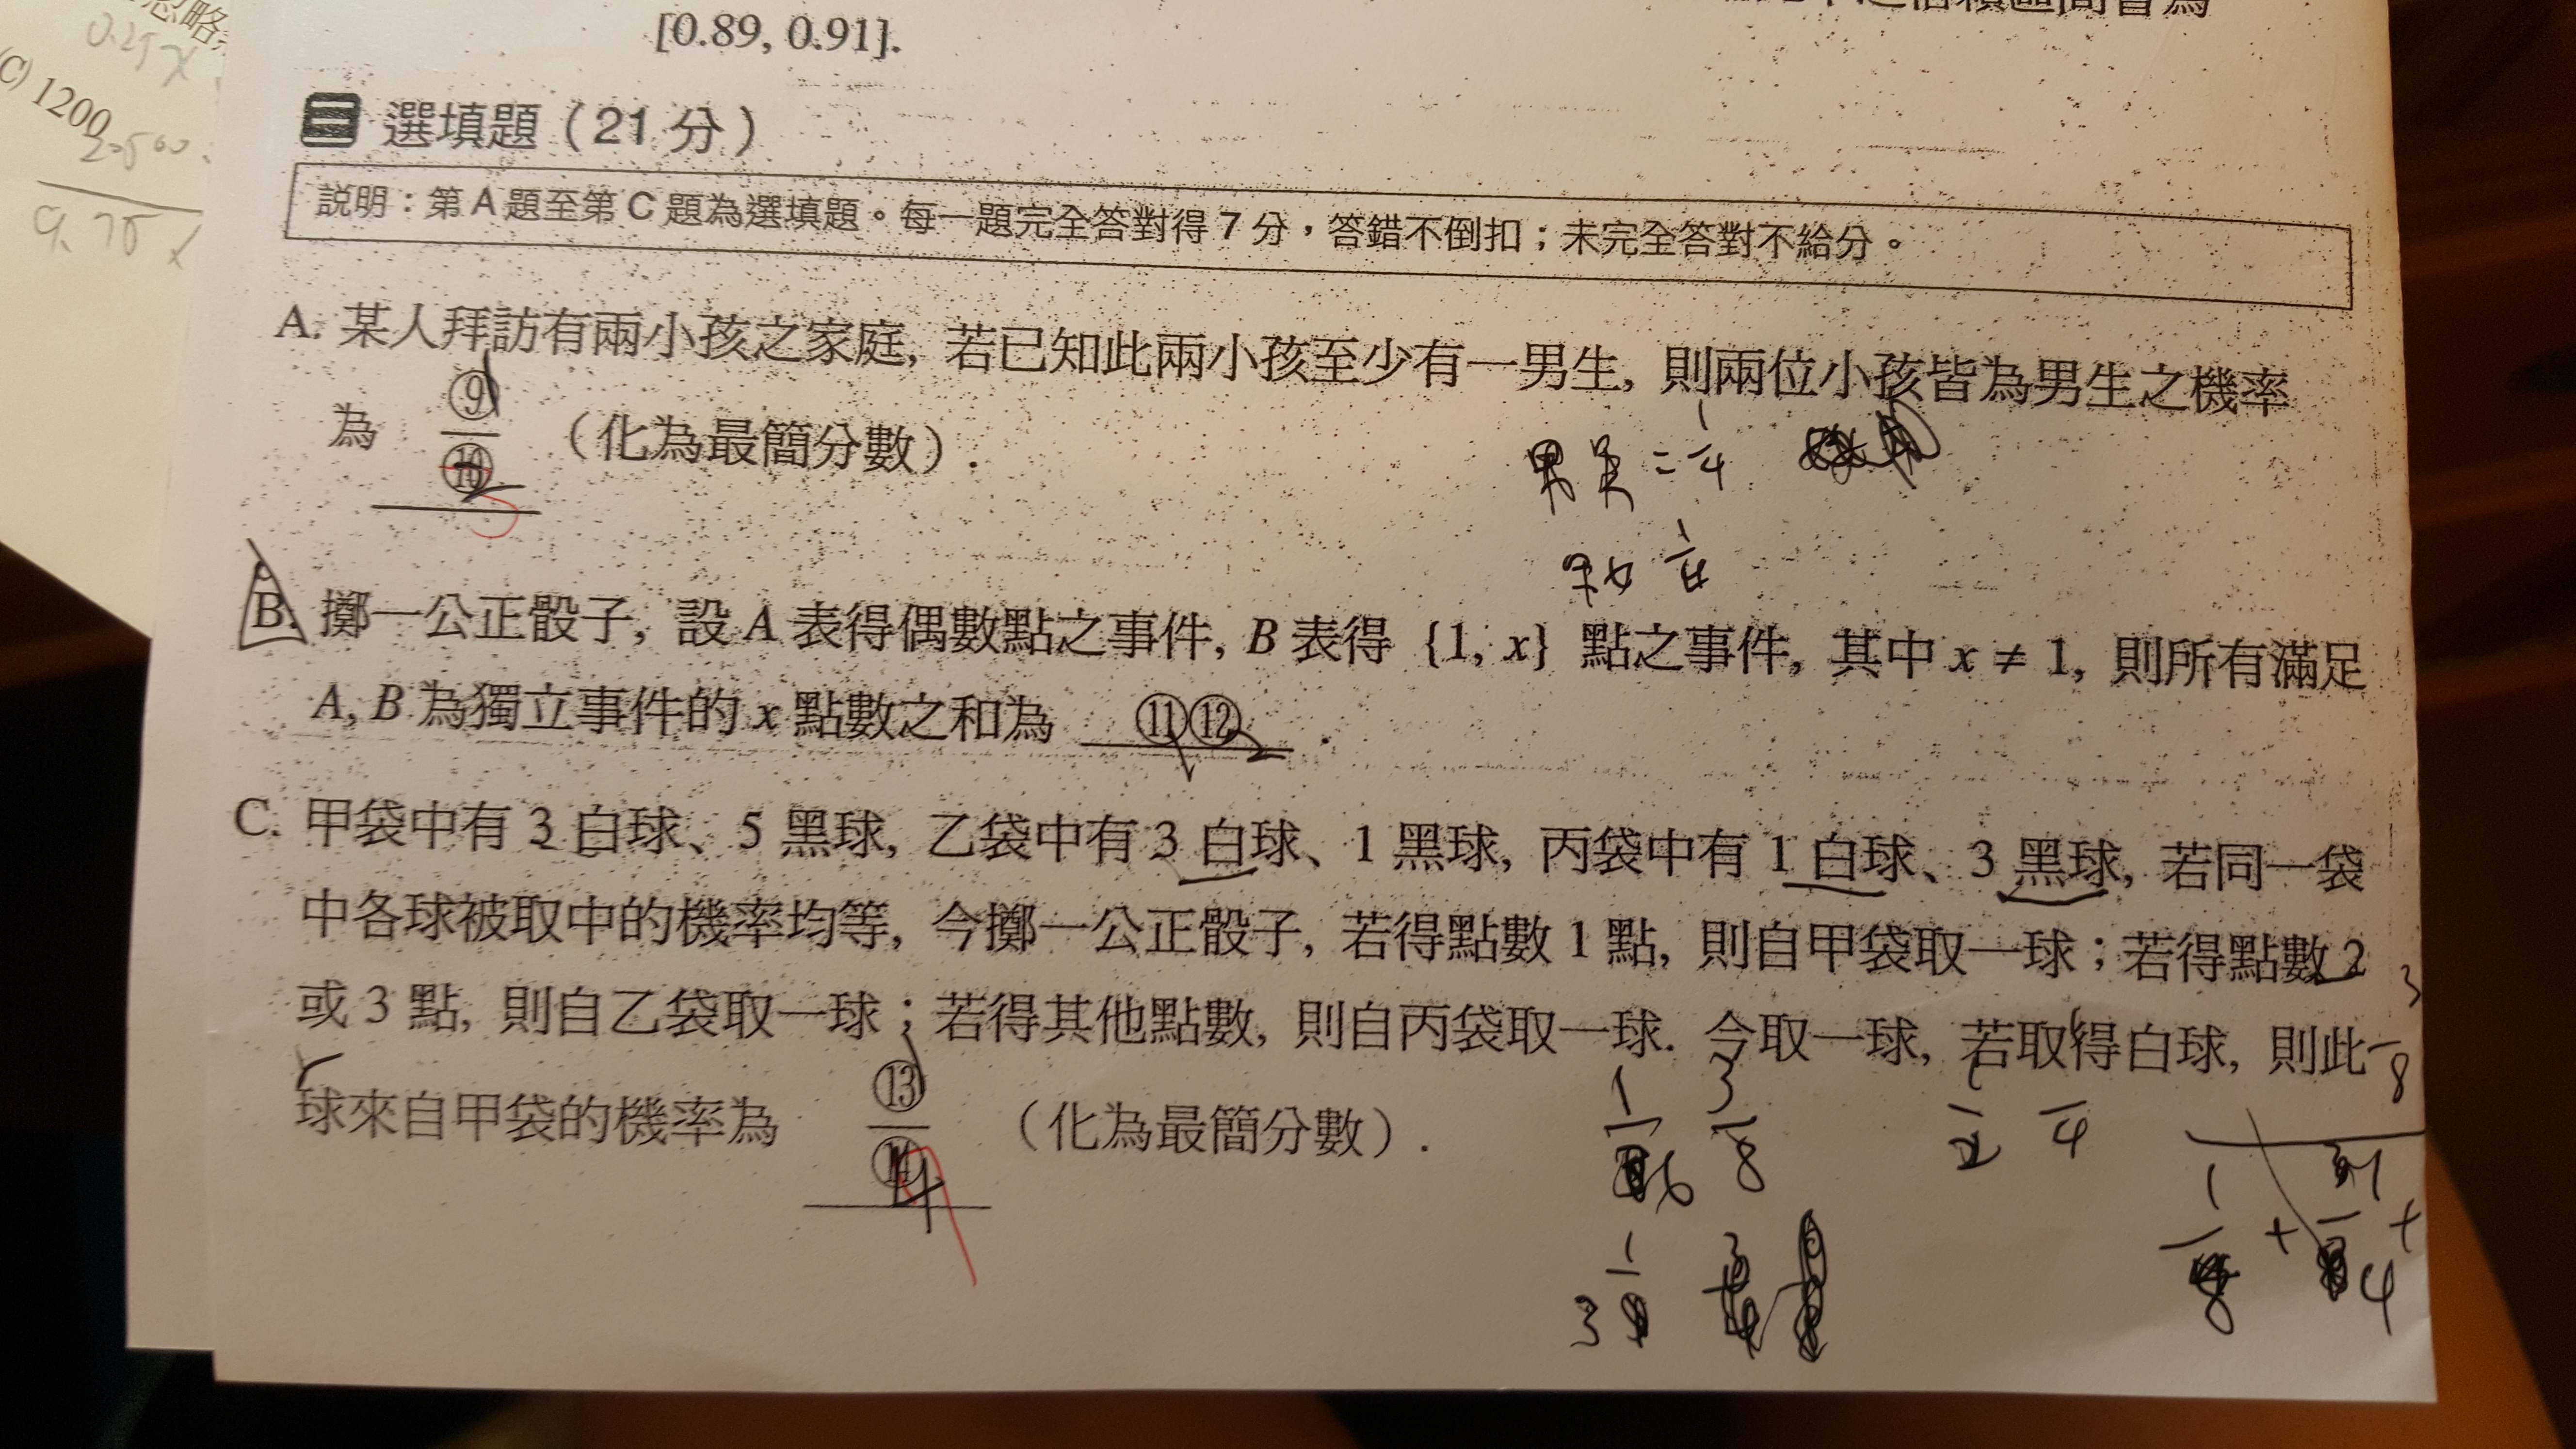 [0.89, 0.91].
(C) 1200
0.25x
9.75x
二 選填題（21 分）
說明：第 A 題至第 C 題為選填題。每一題完全答對得 7 分，答錯不倒扣；未完全答對不給分。
A. 某人拜訪有兩小孩之家庭, 若已知此兩小孩至少有一男生, 則兩位小孩皆為男生之機率
為 ⑨/⑩ （化為最簡分數）.
1
2
3
男男 = 1/4
男女 1/4
B. 擲一公正骰子, 設 A 表得偶數點之事件, B 表得 {1, x} 點之事件, 其中 x ≠ 1, 則所有滿足
A, B 為獨立事件的 x 點數之和為 ⑪⑫ .
1 2
C. 甲袋中有 3 白球、5 黑球, 乙袋中有 3 白球、1 黑球, 丙袋中有 1 白球、3 黑球, 若同一袋
中各球被取中的機率均等, 今擲一公正骰子, 若得點數 1 點, 則自甲袋取一球；若得點數 2
或 3 點, 則自乙袋取一球；若得其他點數, 則自丙袋取一球. 今取一球, 若取得白球, 則此
球來自甲袋的機率為 ⑬/⑭ （化為最簡分數）.
1
4
9
1/6 3/8
1/2 1/4
1/3
3/8
1/8 + 1/4 +